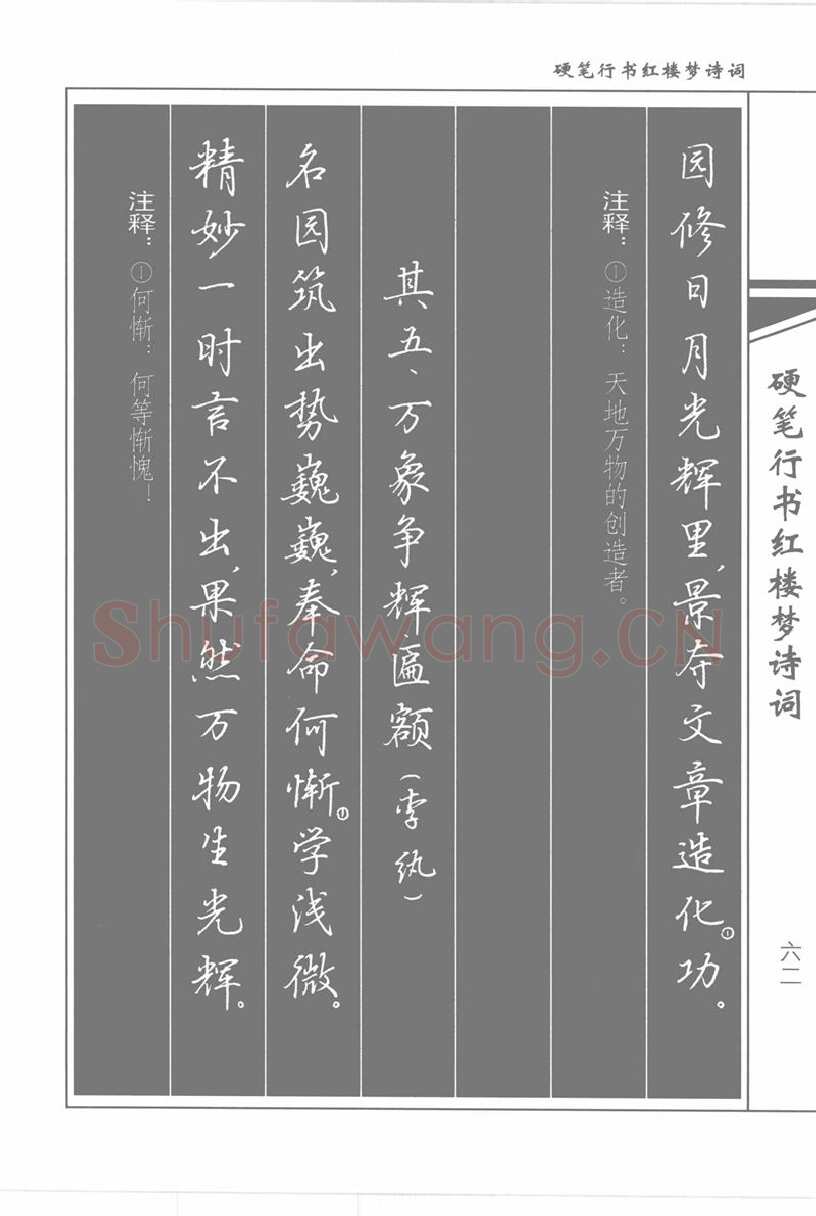 硬笔行书红楼梦诗词
园修日月光辉里，景夺文章造化①功。
注释：①造化：天地万物的创造者。
其五、万象争辉匾额（李纨）
名园筑出势巍巍，奉命何惭①学浅微。
精妙一时言不出，果然万物生光辉。
注释：①何惭：何等惭愧！
硬笔行书红楼梦诗词
六二
Shufawang.CN